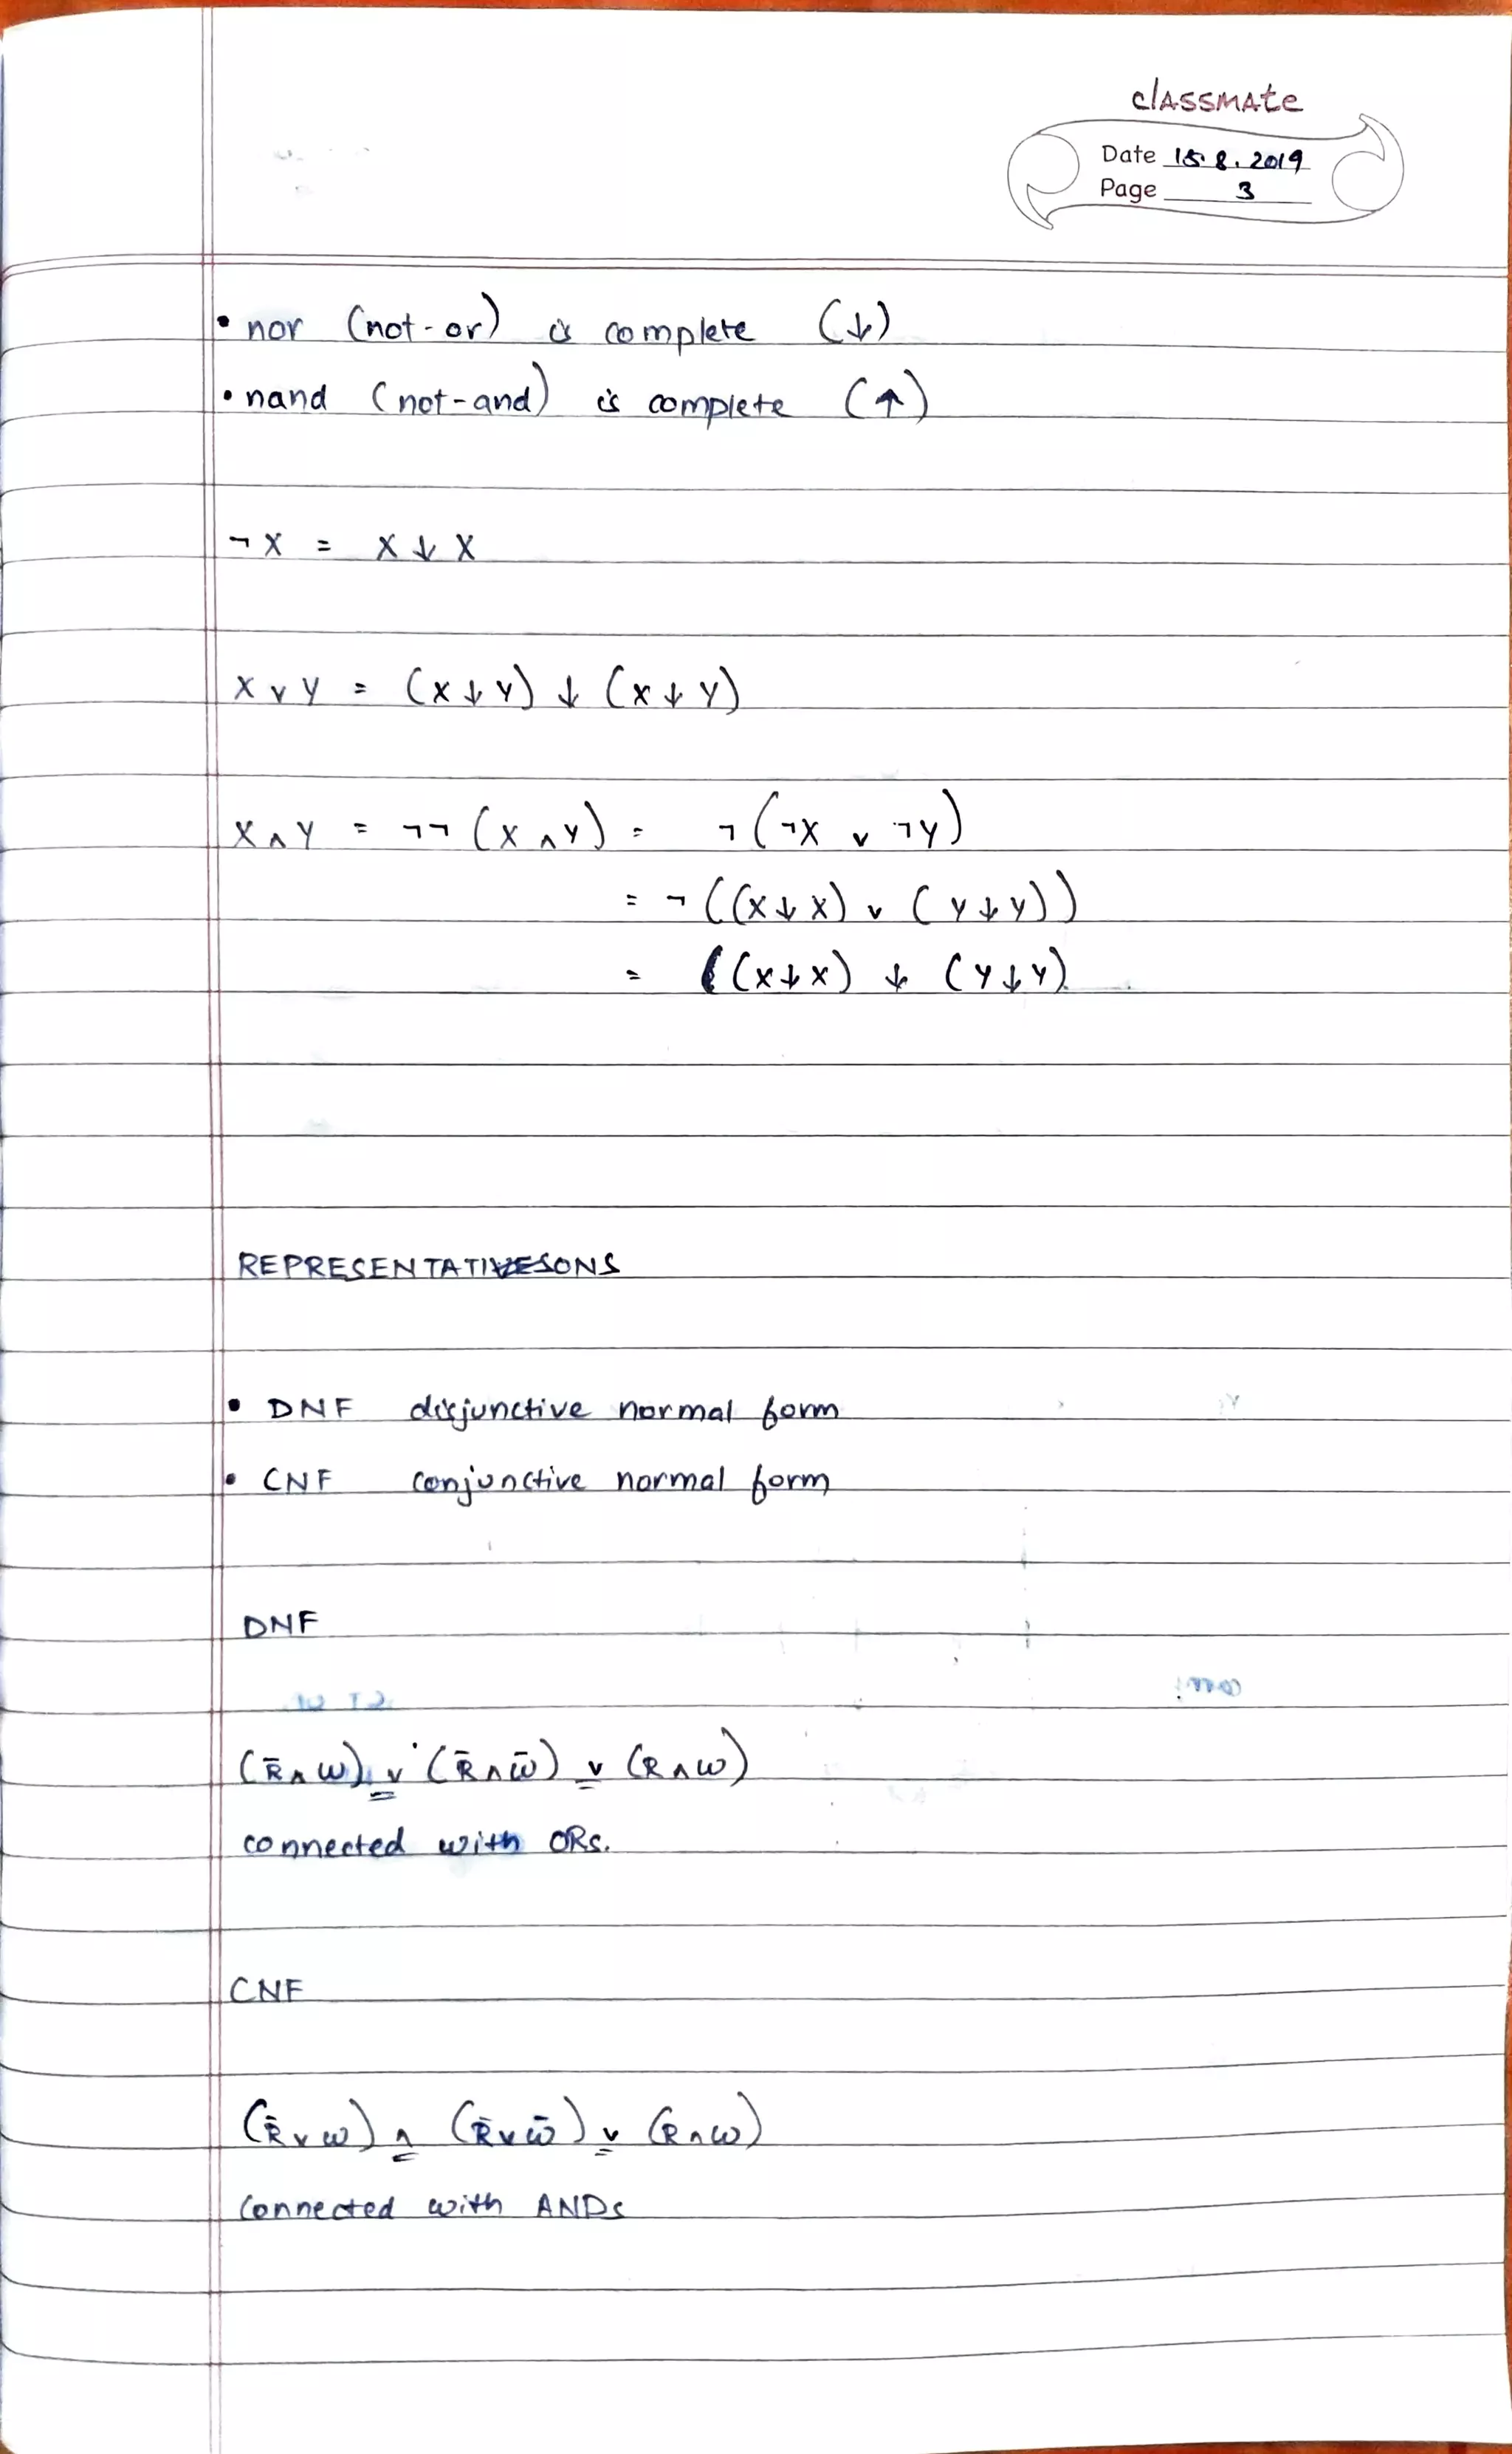 classmate
Date 15.8.2019
Page 3
• nor (not-or) is complete (↓)
• nand (not-and) is complete (↑)
¬X = X ↓ X
X ∨ Y = (X ↓ Y) ↓ (X ↓ Y)
X ∧ Y = ¬¬(X ∧ Y) = ¬(¬X ∨ ¬Y)
= ¬((X ↓ X) ∨ (Y ↓ Y))
= ((X ↓ X) ↓ (Y ↓ Y)
REPRESENTATIONS
• DNF disjunctive normal form
• CNF conjunctive normal form
DNF
(R̄ ∧ W) ∨ (R̄ ∧ W̄) ∨ (R ∧ W)
connected with ORs.
CNF
(R̄ ∨ W) ∧ (R̄ ∨ W̄) ∨ (R ∧ W)
Connected with ANDs